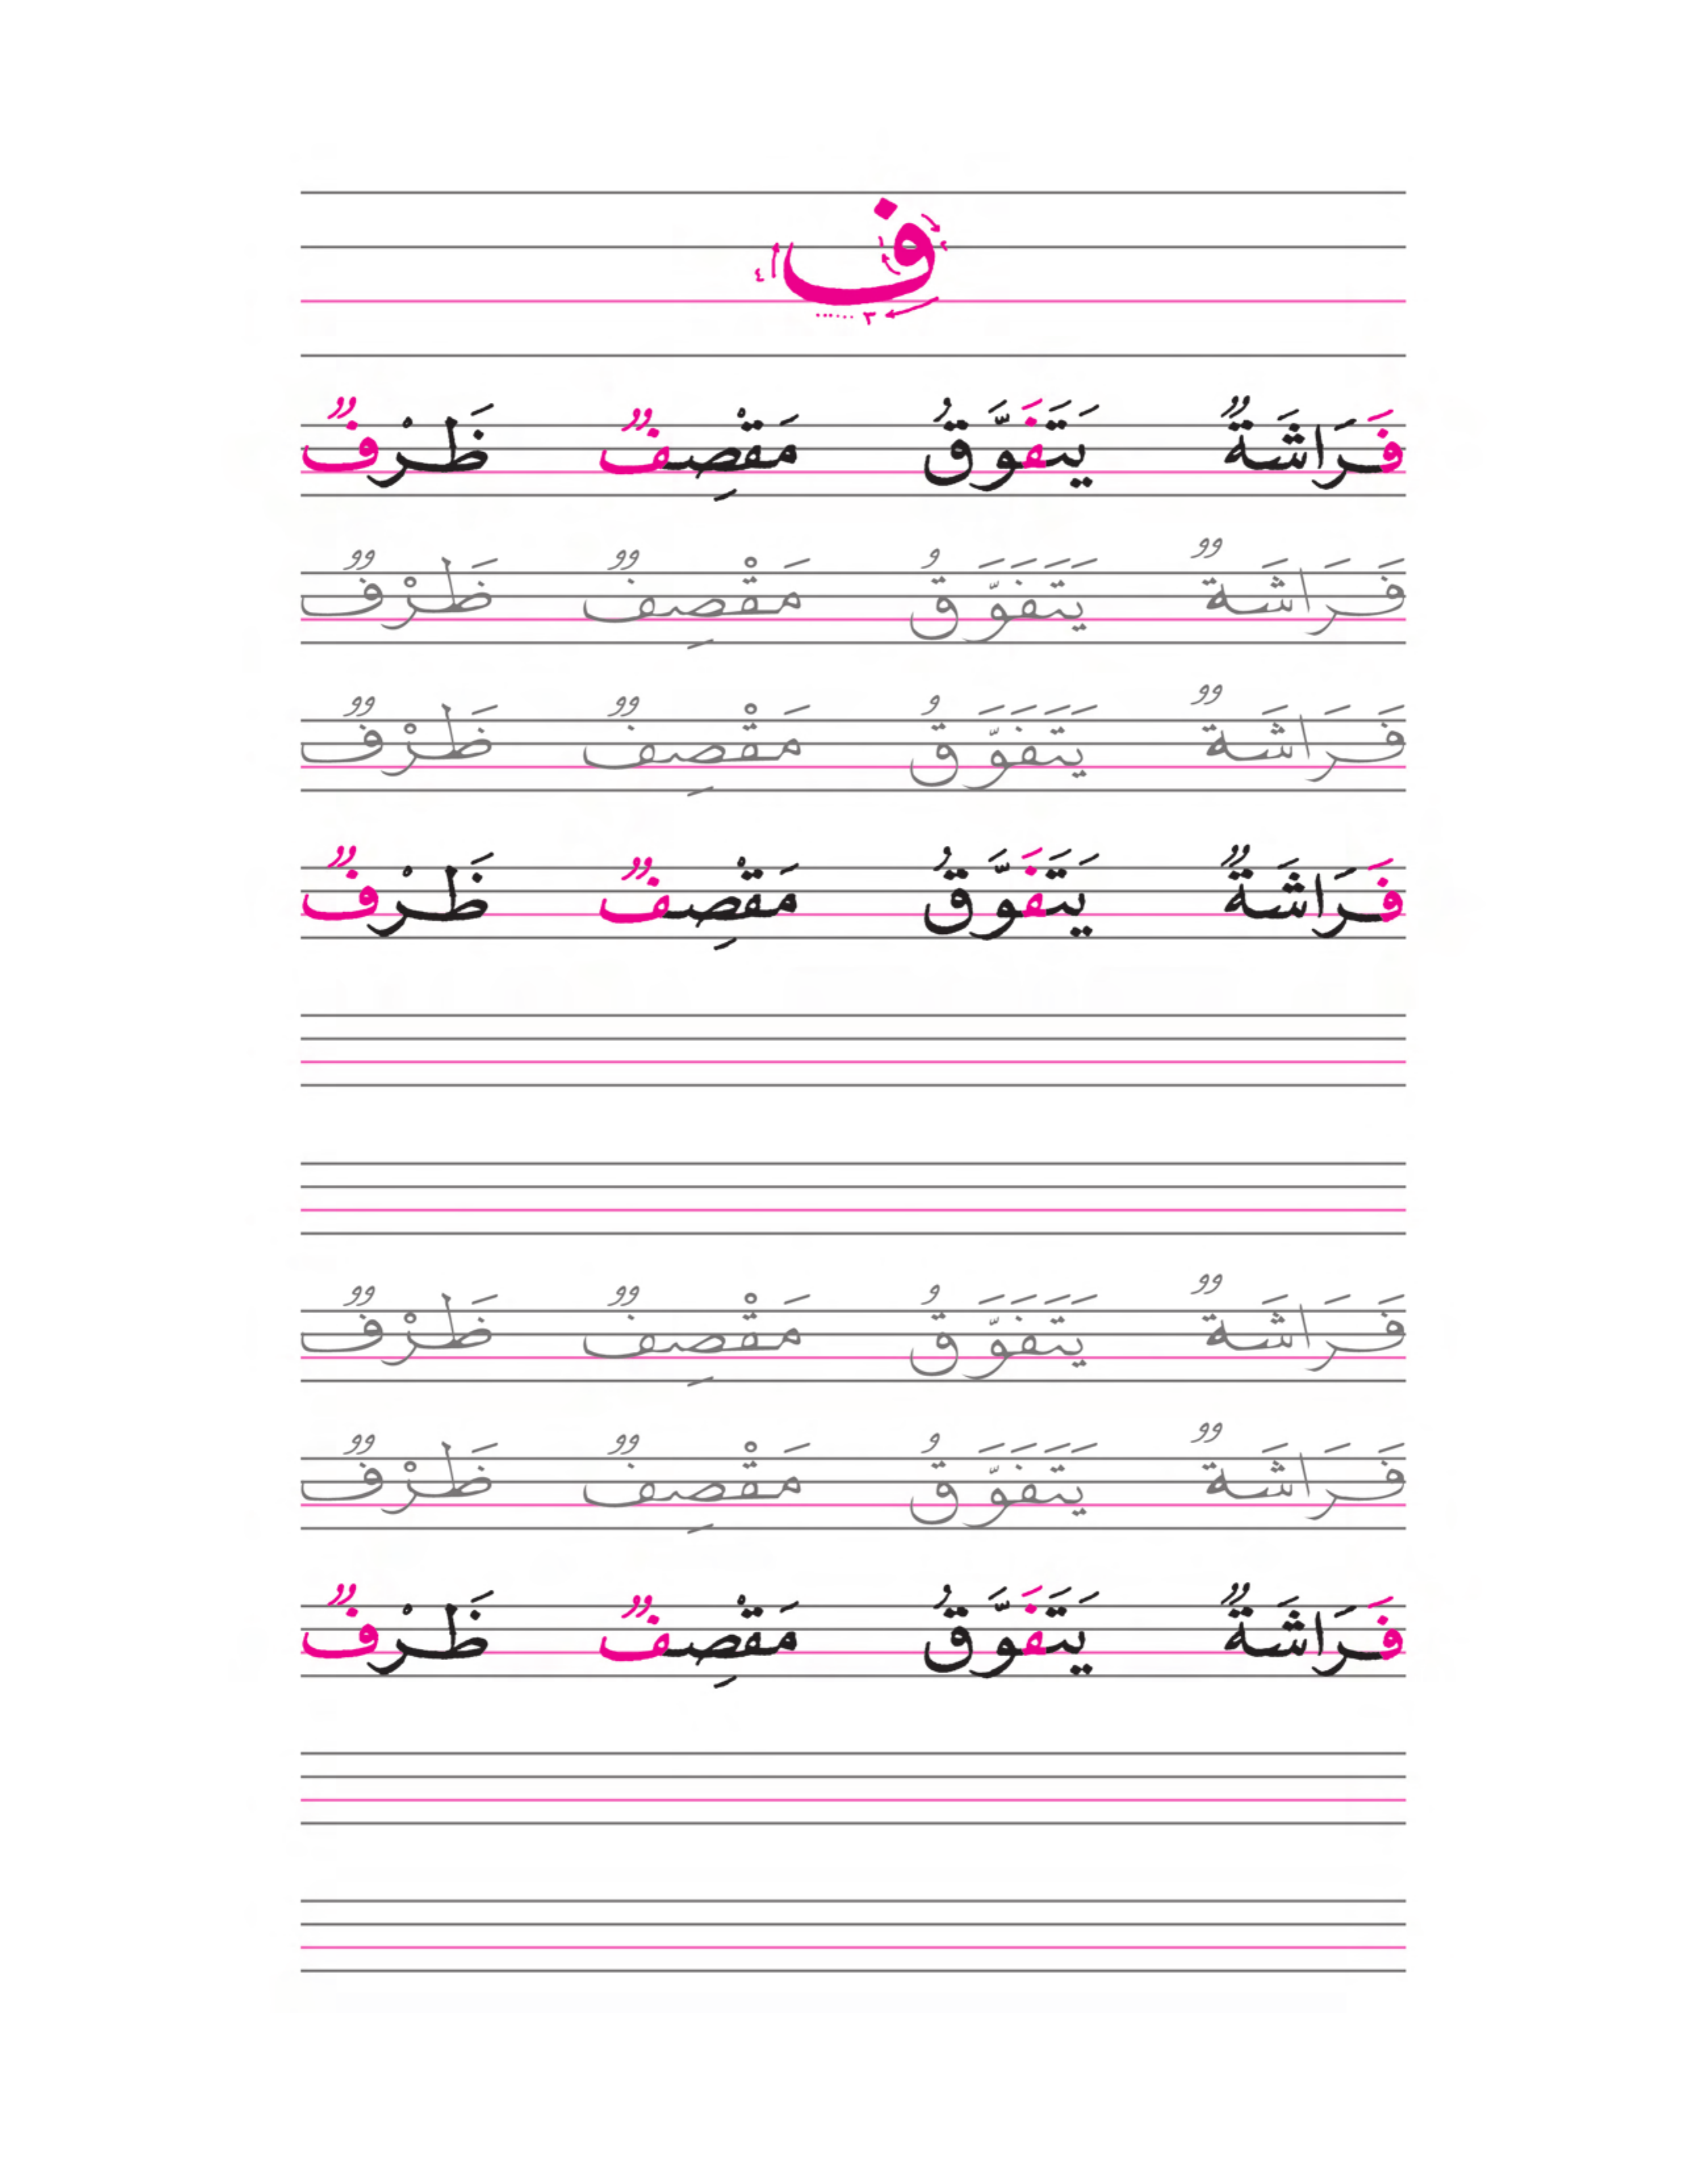 ف
١ ٢ ٣ ٤
فَرَاشَةٌ يَتَفَوَّقُ مَقْصِفٌ ظَرْفٌ
فَرَاشَةٌ يَتَفَوَّقُ مَقْصِفٌ ظَرْفٌ
فَرَاشَةٌ يَتَفَوَّقُ مَقْصِفٌ ظَرْفٌ
فَرَاشَةٌ يَتَفَوَّقُ مَقْصِفٌ ظَرْفٌ
فَرَاشَةٌ يَتَفَوَّقُ مَقْصِفٌ ظَرْفٌ
فَرَاشَةٌ يَتَفَوَّقُ مَقْصِفٌ ظَرْفٌ
فَرَاشَةٌ يَتَفَوَّقُ مَقْصِفٌ ظَرْفٌ